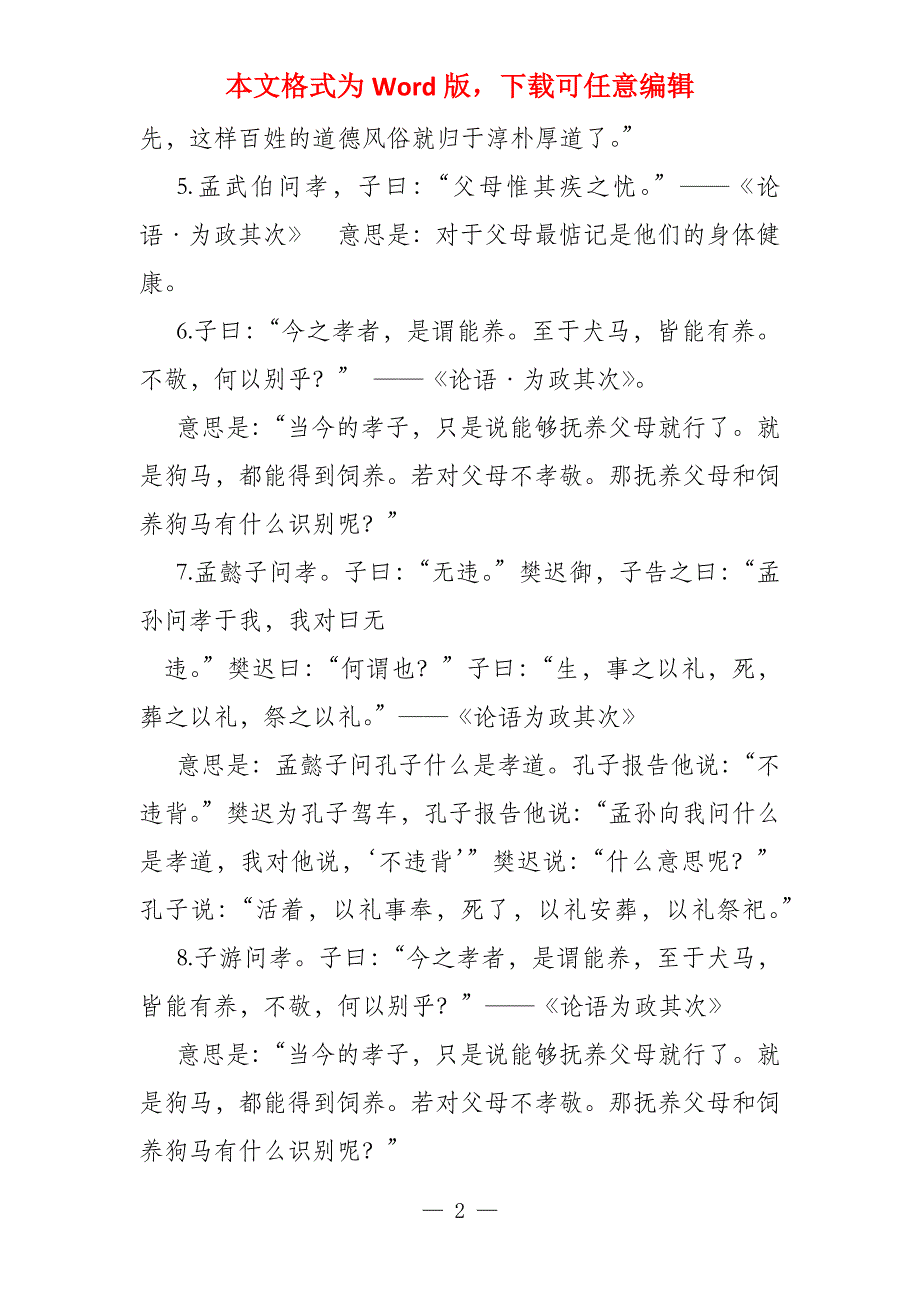 本文格式为 Word 版，下载可任意编辑
先，这样百姓的道德风俗就归于淳朴厚道了。”
5.孟武伯问孝，子曰：“父母惟其疾之忧。”——《论
语·为政其次》 意思是：对于父母最惦记是他们的身体健
康。
6.子曰：“今之孝者，是谓能养。至于犬马，皆能有养。
不敬，何以别乎？” ——《论语·为政其次》。
意思是：“当今的孝子，只是说能够抚养父母就行了。就
是狗马，都能得到饲养。若对父母不孝敬。那抚养父母和饲
养狗马有什么识别呢？”
7.孟懿子问孝。子曰：“无违。”樊迟御，子告之曰：“孟
孙问孝于我，我对曰无
违。”樊迟曰：“何谓也？”子曰：“生，事之以礼，死，
葬之以礼，祭之以礼。”——《论语为政其次》
意思是：孟懿子问孔子什么是孝道。孔子报告他说：“不
违背。”樊迟为孔子驾车，孔子报告他说：“孟孙向我问什么
是孝道，我对他说，‘不违背’”樊迟说：“什么意思呢？”
孔子说：“活着，以礼事奉，死了，以礼安葬，以礼祭祀。”
8.子游问孝。子曰：“今之孝者，是谓能养，至于犬马，
皆能有养，不敬，何以别乎？”——《论语为政其次》
意思是：“当今的孝子，只是说能够抚养父母就行了。就
是狗马，都能得到饲养。若对父母不孝敬。那抚养父母和饲
养狗马有什么识别呢？”
— 2 —